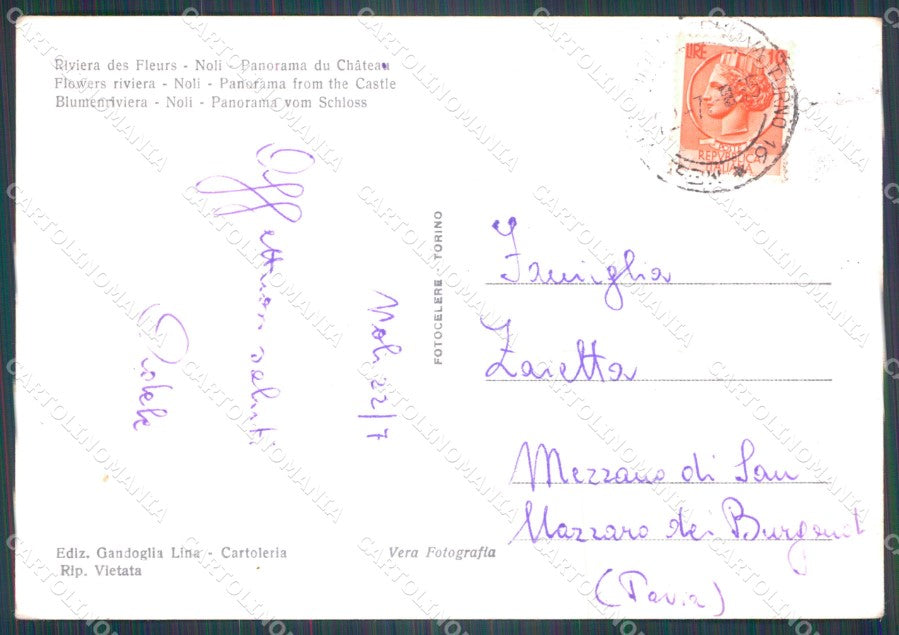 Riviera des Fleurs - Noli - Panorama du Château
Flowers riviera - Noli - Panorama from the Castle
Blumenriviera - Noli - Panorama vom Schloss
LIRE 10
REPVBBLICA
ITALIANA
Noli 22/7
Affettuosi saluti
FOTOCELERE TORINO
Famiglia
Zaietta
Mezzano di San
Nazzaro dei Burgondi
(Pavia)
Ediz. Gandoglia Lina - Cartoleria
Rip. Vietata
Vera Fotografia
CARTOLINOMANIA